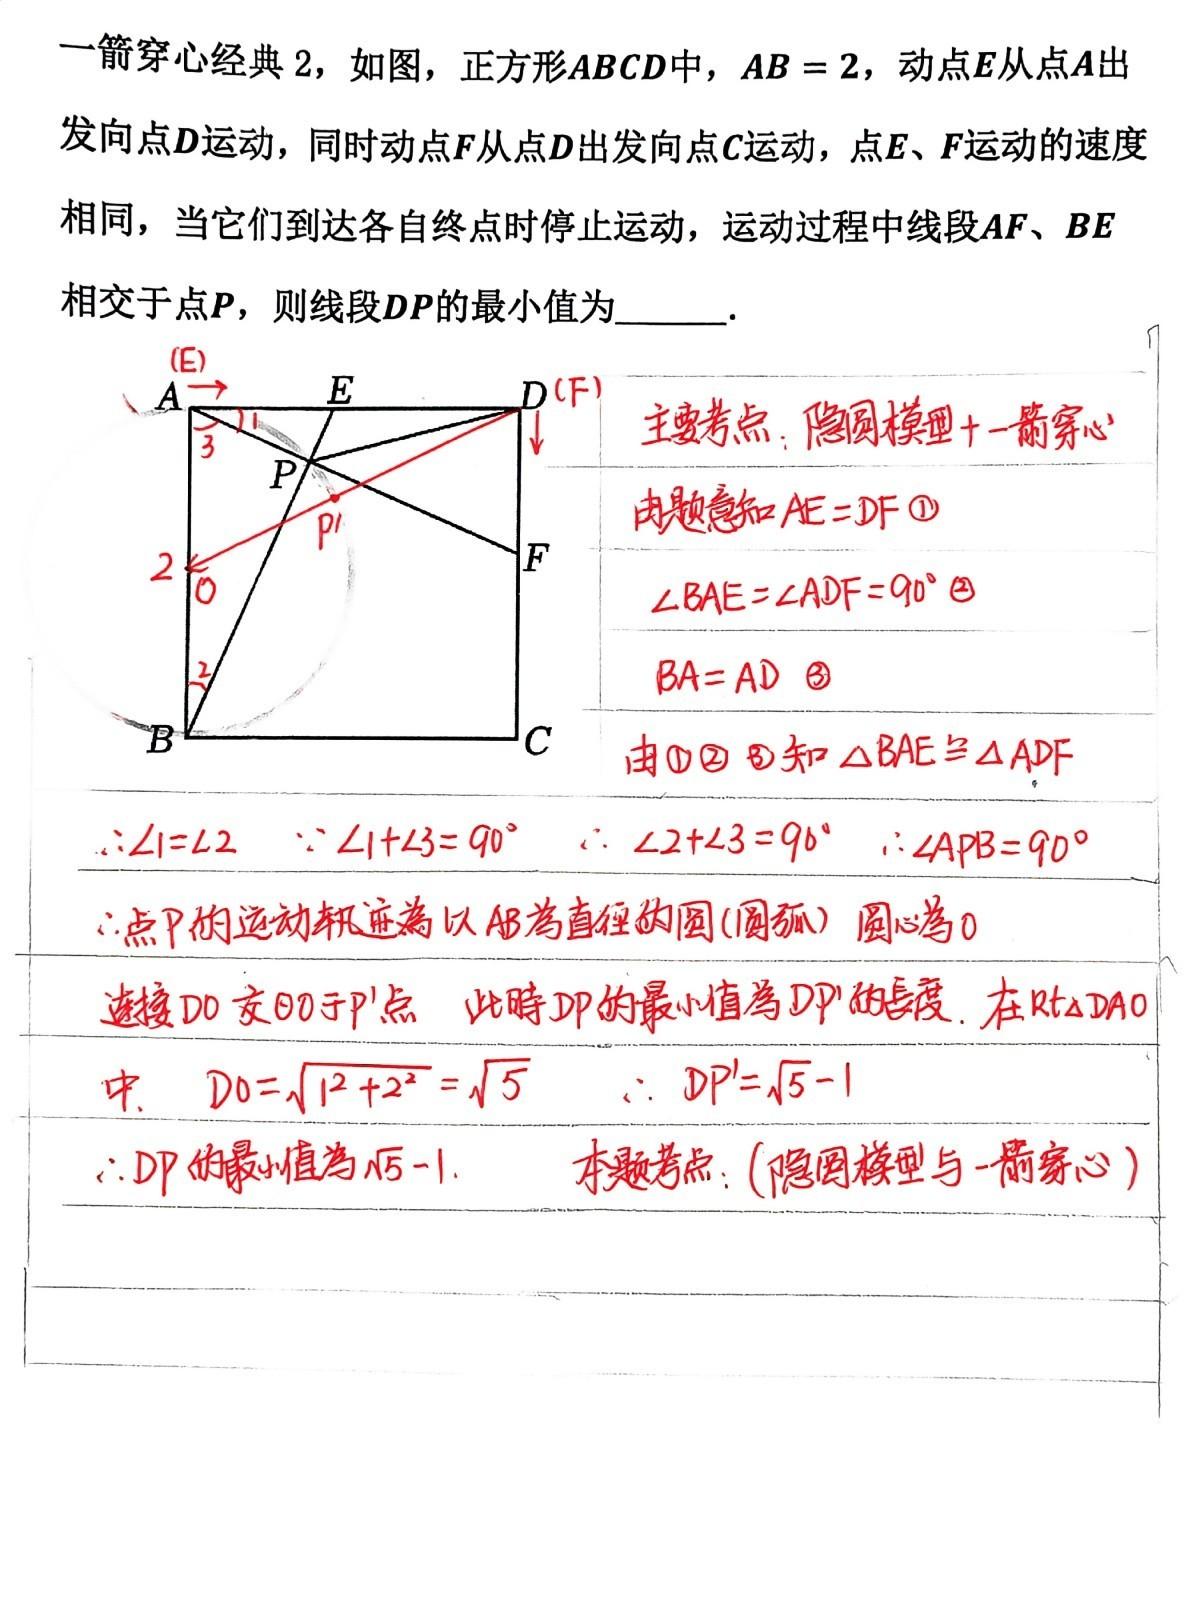 一箭穿心经典 2，如图，正方形ABCD中，AB = 2，动点E从点A出
发向点D运动，同时动点F从点D出发向点C运动，点E、F运动的速度
相同，当它们到达各自终点时停止运动，运动过程中线段AF、BE
相交于点P，则线段DP的最小值为______.
(E)
A
E
D (F)
1
3
P
P'
F
2
O
2
B
C
主要考点：隐圆模型+一箭穿心
由题意知 AE=DF ①
∠BAE=∠ADF=90° ②
BA=AD ③
由①②③知 △BAE≌△ADF
∴∠1=∠2 ∵∠1+∠3=90° ∴ ∠2+∠3=90° ∴∠APB=90°
∴点P的运动轨迹為以AB為直径的圆(圆弧) 圆心為O
连接DO 交⊙O于P'点 此時DP的最小值為DP'的長度. 在Rt△DAO
中, DO=√(1²+2²)=√5 ∴ DP'=√5-1
∴DP的最小值為√5-1. 本题考点：(隐圆模型与一箭穿心)